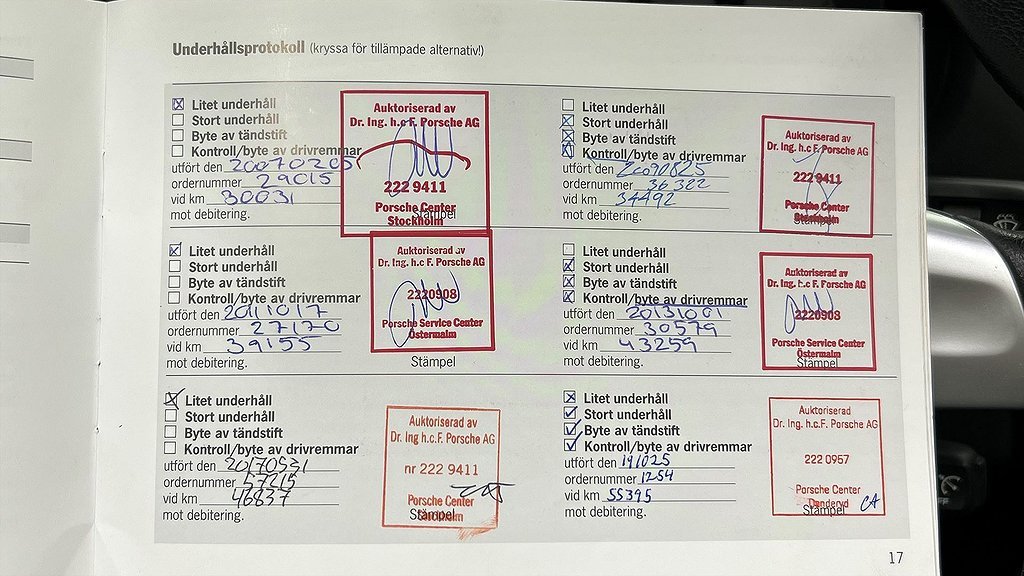 Underhållsprotokoll (kryssa för tillämpade alternativ!)
Litet underhåll
Stort underhåll
Byte av tändstift
Kontroll/byte av drivremmar
utfört den 20070205
ordernummer 29015
vid km 30031
mot debitering.
Auktoriserad av
Dr. Ing. h.c F. Porsche AG
222 9411
Porsche Center
Stockholm
Stämpel
Litet underhåll
Stort underhåll
Byte av tändstift
Kontroll/byte av drivremmar
utfört den 20090825
ordernummer 36322
vid km 34492
mot debitering.
Auktoriserad av
Dr. Ing. h.c F. Porsche AG
222 9411
Porsche Center
Stockholm
Stämpel
Litet underhåll
Stort underhåll
Byte av tändstift
Kontroll/byte av drivremmar
utfört den 20111017
ordernummer 27170
vid km 39155
mot debitering.
Auktoriserad av
Dr. Ing. h.c F. Porsche AG
2220908
Porsche Service Center
Östermalm
Stämpel
Litet underhåll
Stort underhåll
Byte av tändstift
Kontroll/byte av drivremmar
utfört den 20131001
ordernummer 30579
vid km 43259
mot debitering.
Auktoriserad av
Dr. Ing. h.c F. Porsche AG
2220908
Porsche Service Center
Östermalm
Stämpel
Litet underhåll
Stort underhåll
Byte av tändstift
Kontroll/byte av drivremmar
utfört den 20170531
ordernummer 57215
vid km 46837
mot debitering.
Auktoriserad av
Dr. Ing h.c.F. Porsche AG
nr 222 9411
Porsche Center
Stockholm
Stämpel
Litet underhåll
Stort underhåll
Byte av tändstift
Kontroll/byte av drivremmar
utfört den 191025
ordernummer 1254
vid km 55395
mot debitering.
Auktoriserad
Dr. Ing. h.c.F. Porsche AG
222 0957
Porsche Center
Danderyd
Stämpel
CA
17